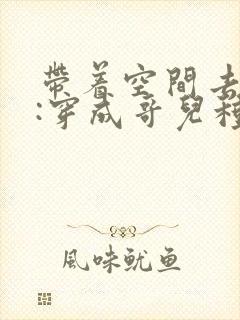 帶着空間去
:穿成哥兒
風味魷鱼